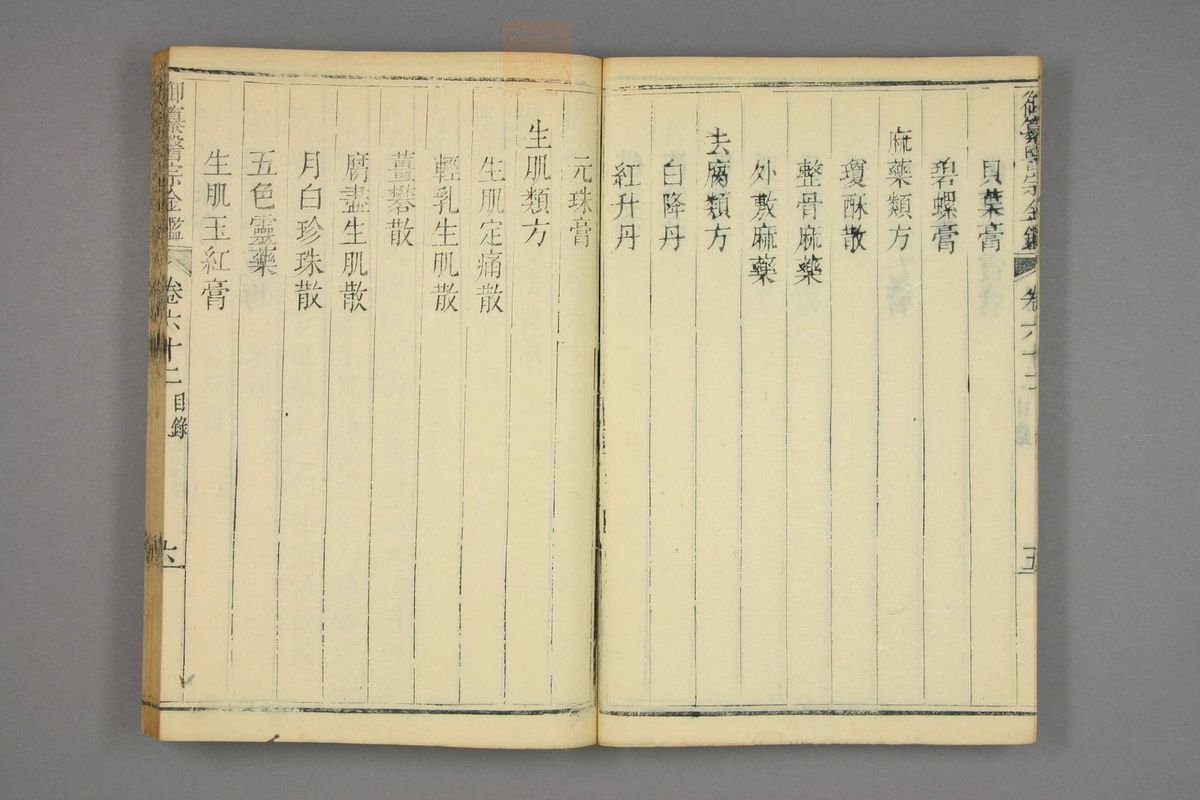 御纂醫宗金鑑 卷六十二 五
貝葉膏
碧螺膏
麻藥類方
瓊酥散
整骨麻藥
外敷麻藥
去腐類方
白降丹
紅升丹
元珠膏
生肌類方
生肌定痛散
輕乳生肌散
薑礬散
腐盡生肌散
月白珍珠散
五色靈藥
生肌玉紅膏
御纂醫宗金鑑 卷六十二 目錄 六